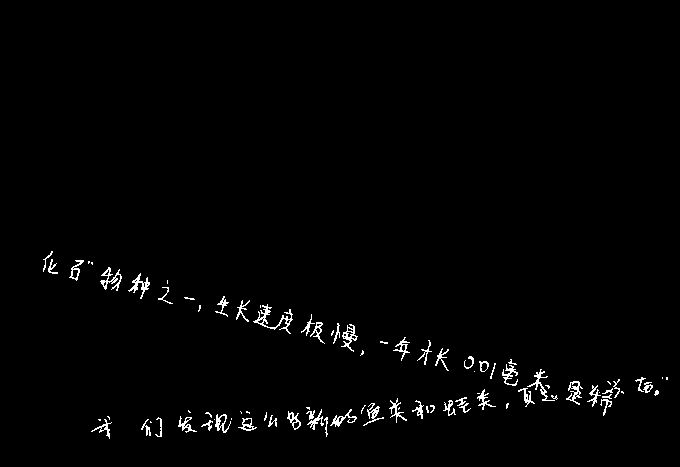 化石"物种之一,生长速度极慢,一年才长0.01毫米
我们发现这么多新的鱼类和蛙类,真是是